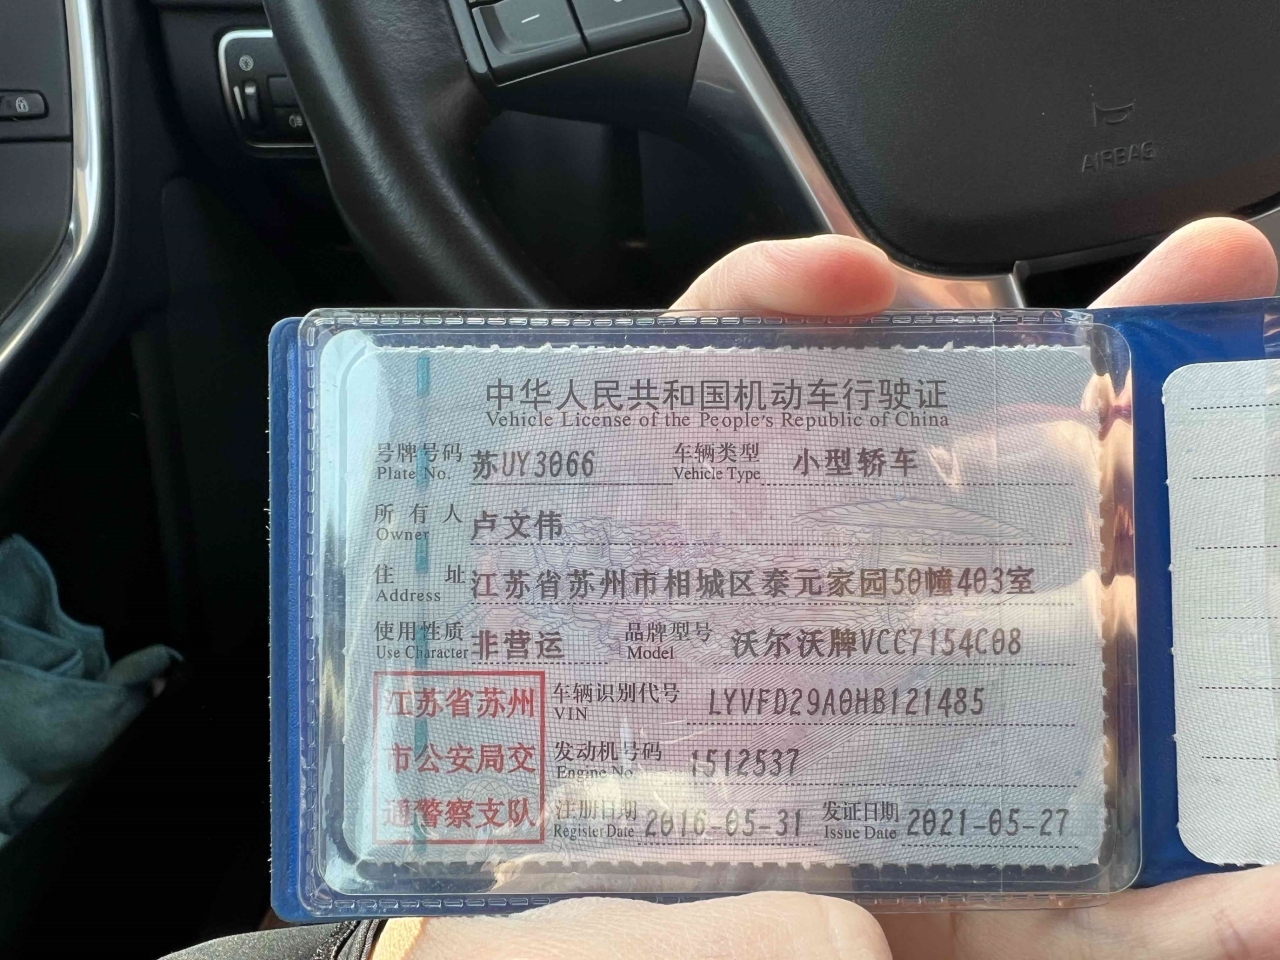 AIRBAG
中华人民共和国机动车行驶证
Vehicle License of the People's Republic of China
号牌号码 苏UY3066 车辆类型 小型轿车
Plate No. Vehicle Type
所有人 卢文伟
Owner
住址 江苏省苏州市相城区泰元家园50幢403室
Address
使用性质 非营运 品牌型号 沃尔沃牌VCC7154C08
Use Character Model
江苏省苏州
市公安局交
通警察支队
车辆识别代号 LYVFD29A0HB121485
VIN
发动机号码 1512537
Engine No.
注册日期 2016-05-31 发证日期 2021-05-27
Register Date Issue Date